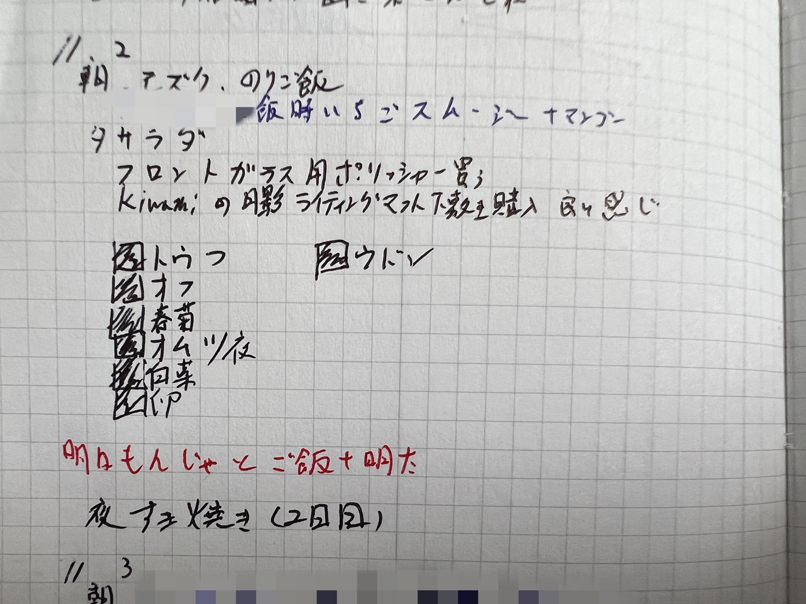 // 2
朝 アズク、のりご飯
飯時いちごスムージー + マンゴー
タサラダ
フロントガラス用ポリッシャー買う
Kiwamiの月影ライティングマット下敷き購入 良い感じ
トウフ ウドン
オフ
春菊
オムツ夜
白菜
卵
明日もんじゃとご飯+明太
夜 すき焼き (2日目)
// 3
朝